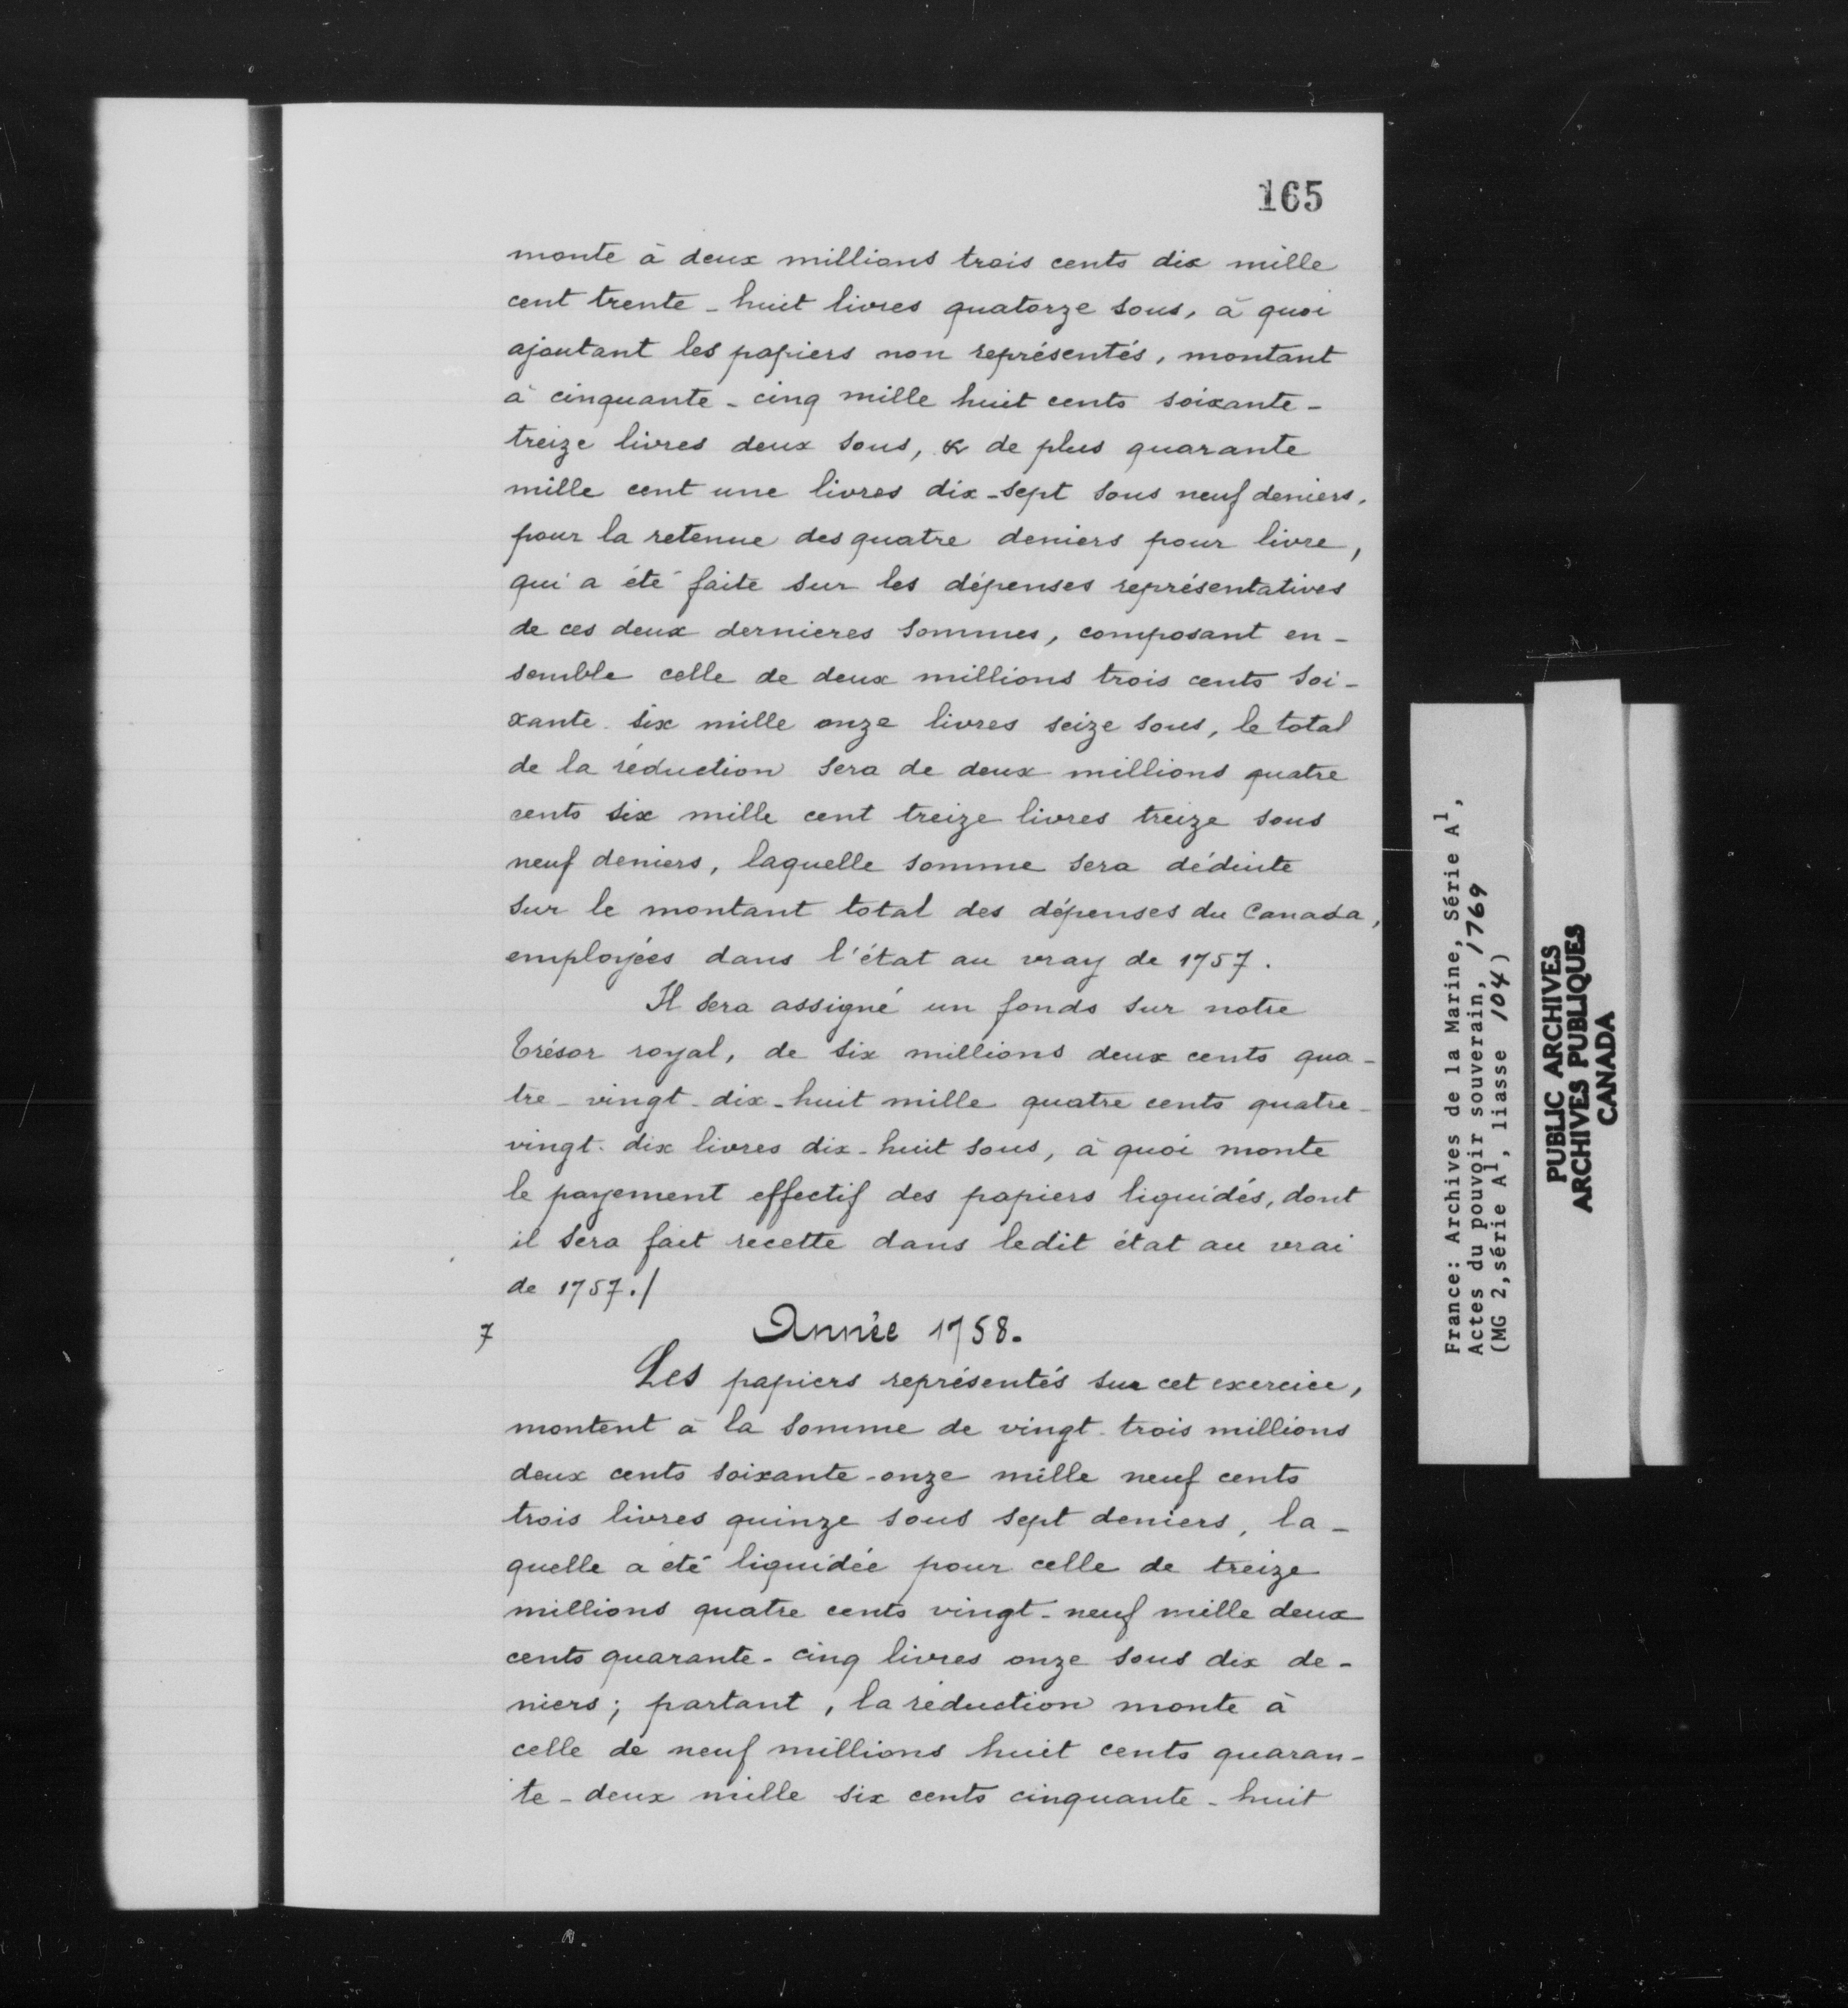 165
monte à deux millions trois cents dix mille
cent trente-huit livres quatorze sous, à quoi
ajoutant les papiers non représentés, montant
à cinquante-cinq mille huit cents soixante-
treize livres deux sous, & de plus quarante
mille cent une livres dix-sept sous neuf deniers,
pour la retenue des quatre deniers pour livre,
qui a été faite sur les dépenses représentatives
de ces deux dernieres sommes, composant en-
semble celle de deux millions trois cents soi-
xante-six mille onze livres seize sous, le total
de la réduction sera de deux millions quatre
cents six mille cent treize livres treize sous
neuf deniers, laquelle somme sera déduite
sur le montant total des dépenses du Canada,
employées dans l'état au vray de 1757.
Il sera assigné un fonds sur notre
Trésor royal, de six millions deux cents qua-
tre-vingt-dix-huit mille quatre cents quatre-
vingt-dix livres dix-huit sous, à quoi monte
le payement effectif des papiers liquidés, dont
il sera fait recette dans ledit état au vrai
de 1757./
7 Année 1758.
Les papiers représentés sur cet exercice,
montent à la somme de vingt-trois millions
deux cents soixante-onze mille neuf cents
trois livres quinze sous sept deniers, la-
quelle a été liquidée pour celle de treize
millions quatre cents vingt-neuf mille deux
cents quarante-cinq livres onze sous dix de-
niers; partant, la réduction monte à
celle de neuf millions huit cents quaran-
te-deux mille six cents cinquante-huit
France: Archives de la Marine, Série A1,
Actes du pouvoir souverain, 1769
(MG 2, série A1, liasse 104)
PUBLIC ARCHIVES
ARCHIVES PUBLIQUES
CANADA